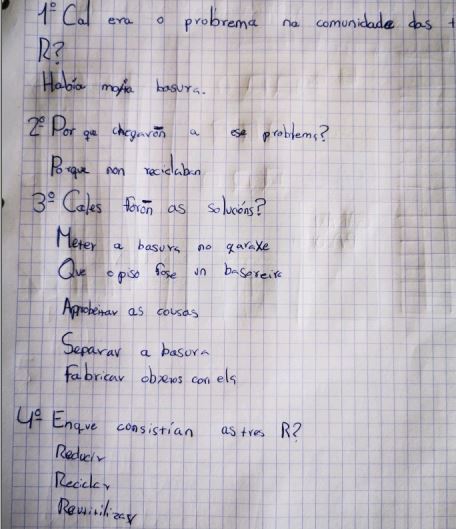 1º Cal era o probrema na comunidade das t
R?
Había moita basura.
2º Por que chegarón a ese problema?
Porque non reciclaban
3º Cales forón as solucións?
Meter a basura no garaxe
Que o piso fose un basureiro
Aprobeitar as cousas
Separar a basura
Fabricar obxetos con ela
4º Enque consistían as tres R?
Reducir
Reciclar
Reutilizar